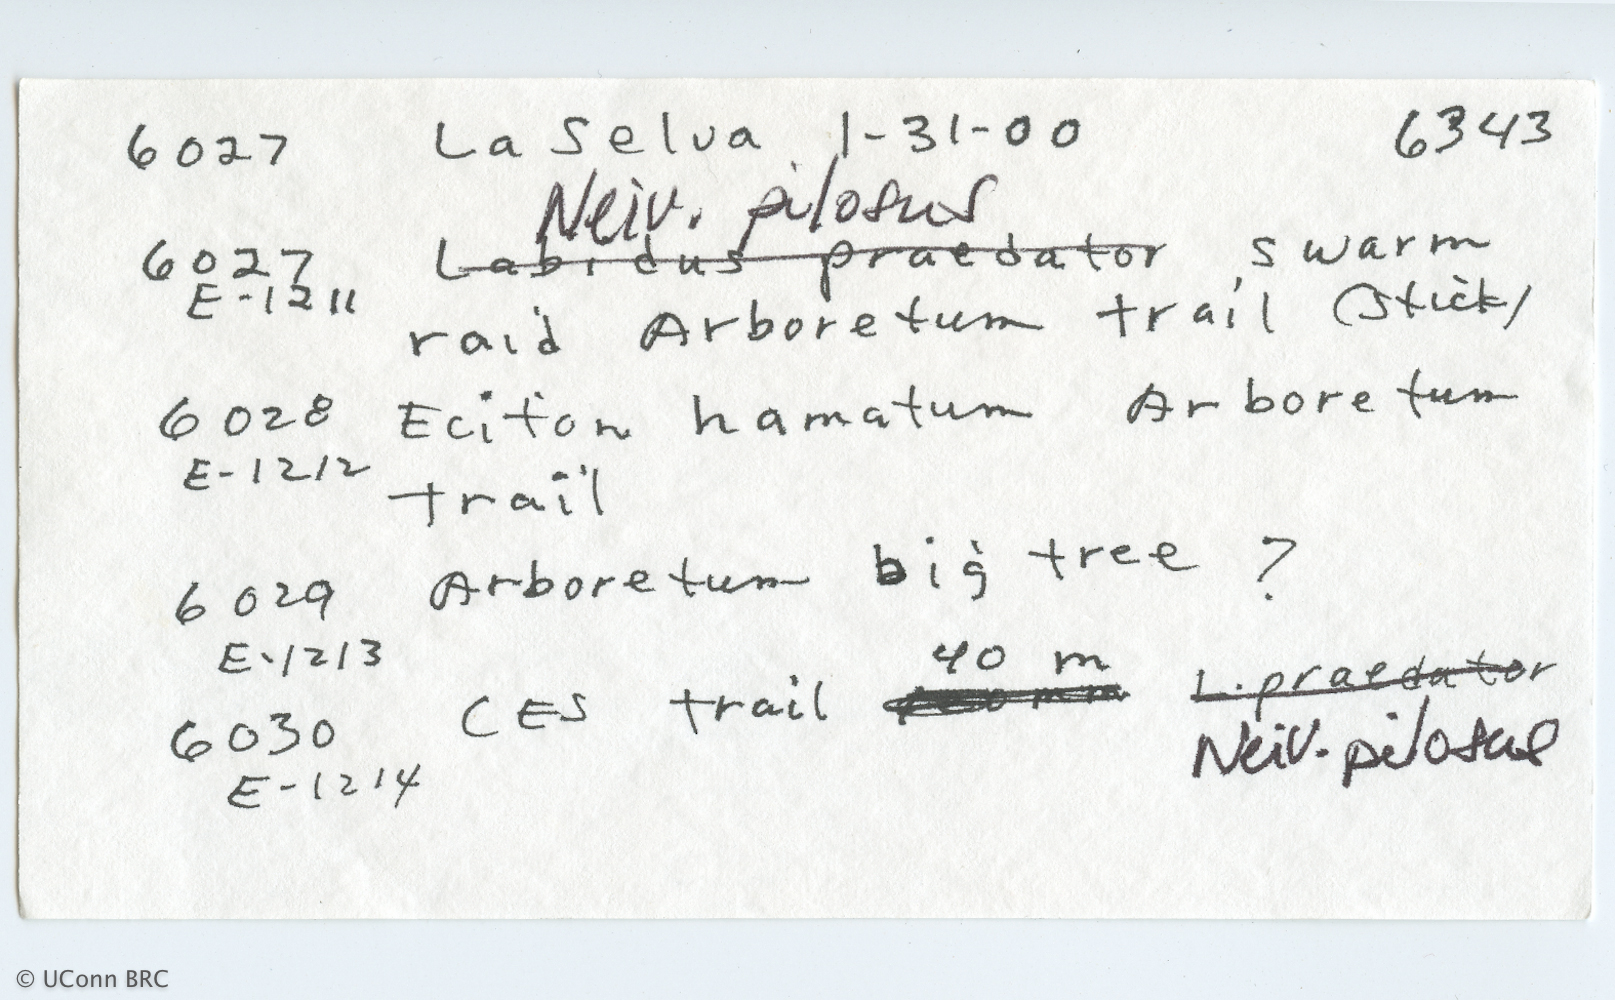 6027 La Selva 1-31-00 6343
Neiv. pilosus
6027 Labidus praedator swarm
E-1211 raid Arboretum trail (stick)
6028 Eciton hamatum Arboretum
E-1212 trail
6029 Arboretum big tree ?
E-1213 40 m
6030 CES trail L. praedator
E-1214 Neiv. pilosus
© UConn BRC